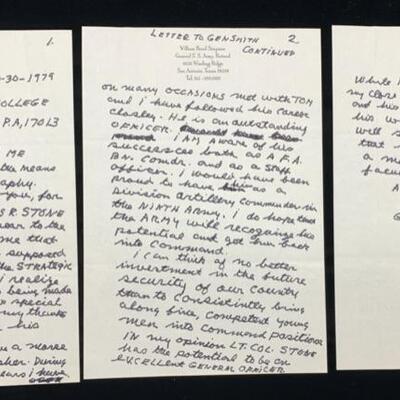 1.
-30-1979
COLLEGE
PA, 17013
ME
the means
you, for
R. STONE
to the
me that
supposed
the STRATEGIC
I realize
being made
special
my thanks
his
a more
During
I have
LETTER TO GEN SMITH 2
CONTINUED
William Hood Simpson
General U. S. Army, Retired
San Antonio, Texas
on many OCCASIONS met with TOM
and I have followed his career
closely. He is an outstanding
OFFICER.
I AM AWARE of his
successes both as A F.A.
BN. Comdr. and as a STAFF
officer. I would have been
proud to have him as a
Division artillery commander in
the NINTH ARMY. I do hope that
the ARMY will recognize his
potential and get him back
into Command.
I can think of no better
investment in the future
security of our country
than to consistently bring
along fine, competent young
men into command positions
IN my opinion LT. COL. STONE
has the potential to be an
EXCELLENT GENERAL OFFICER
While
my close
and his
his
well
that
a m
facu
A
G